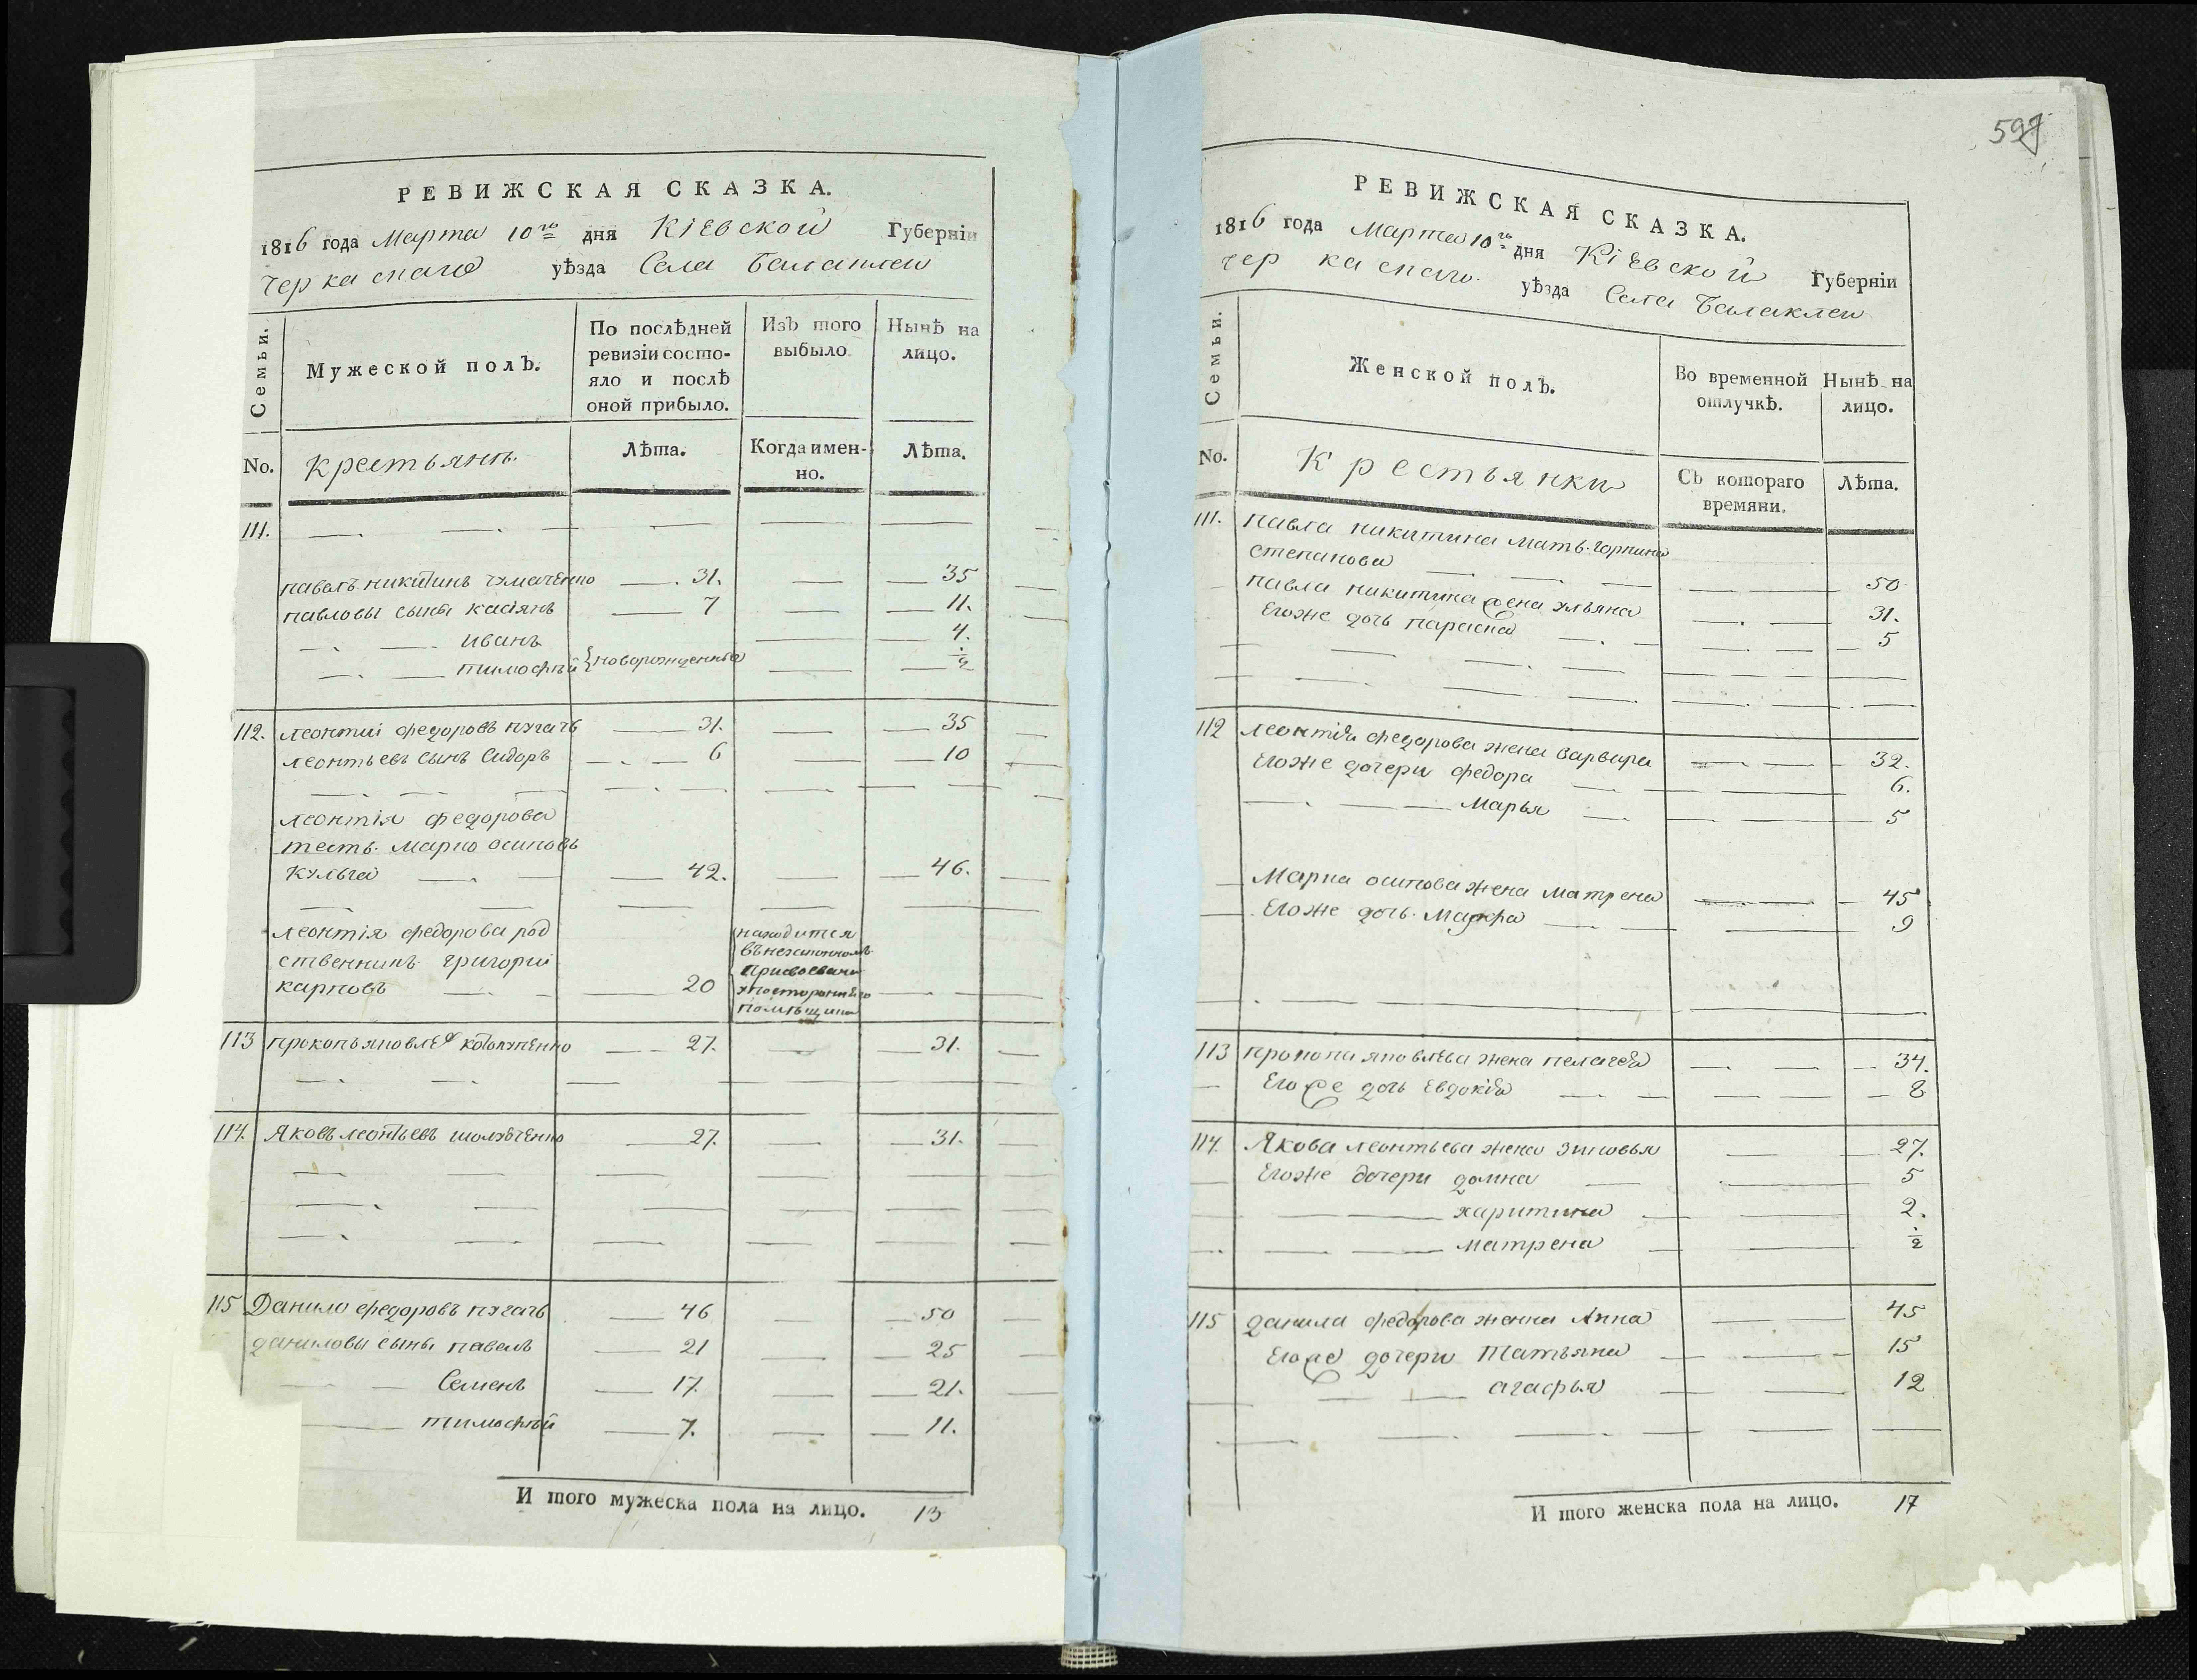 РЕВИЖСКАЯ СКАЗКА.
1816 года Марта 10го дня Кіевской Губерніи
Черкаскаго уѣзда Села Балаклеи
Семьи. Мужеской полъ. По послѣдней ревизіи состояло и послѣ оной прибыло. Изъ того выбыло Нынѣ на лицо.
No. Крестьянъ Лѣта. Когда именно. Лѣта.
111.
павелъ никитинъ чумаченко 31. 35
павловы сыны касіянъ 7 11.
иванъ 4.
тимофѣй новорожденны ½
112. леонтии федоровъ пугачь 31. 35
леонтьевъ сынъ Сидоръ 6 10
леонтія федорова
тесть марко осиповъ
кулыга 42. 46.
леонтія федорова род
ственникъ григорий
карповъ 20
находится
въ незаконномъ
присвоении
у посторонняго
помѣщика
113 прокопъ яковлев 27. 31.
114. Яковъ леонтьевъ шолудченко 27. 31.
115 Данило федоровъ пугачь 46 50
даниловы сыны павелъ 21 25
Семенъ 17. 21.
тимофѣй 7. 11.
И того мужеска пола на лицо. 13
597
РЕВИЖСКАЯ СКАЗКА.
1816 года Марта 10го дня Кіевской Губерніи
Черкаскаго уѣзда Села Балаклеи
Семьи. Женской полъ. Во временной отлучкѣ. Нынѣ на лицо.
No. Крестьянки Съ котораго времяни. Лѣта.
111. павла никитина мать горпина
степанова 50
павла никитина жена ульяна 31.
Егоже дочь параска 5
112 леонтія федорова жена варвара 32.
Егоже дочери федора 6.
Марья 5
Марка осипова жена матрена 45
Егоже дочь марфа 9
113 прокопа яковлева жена пелагея 34.
Егоже дочь евдокія 8
114. Якова леонтьева жена зиновья 27.
Егоже дочери домна 5
харитина 2.
матрена ½
115 данила федорова жена Анна 45
Егоже дочери Татьяна 15
агафья 12
И того женска пола на лицо. 17